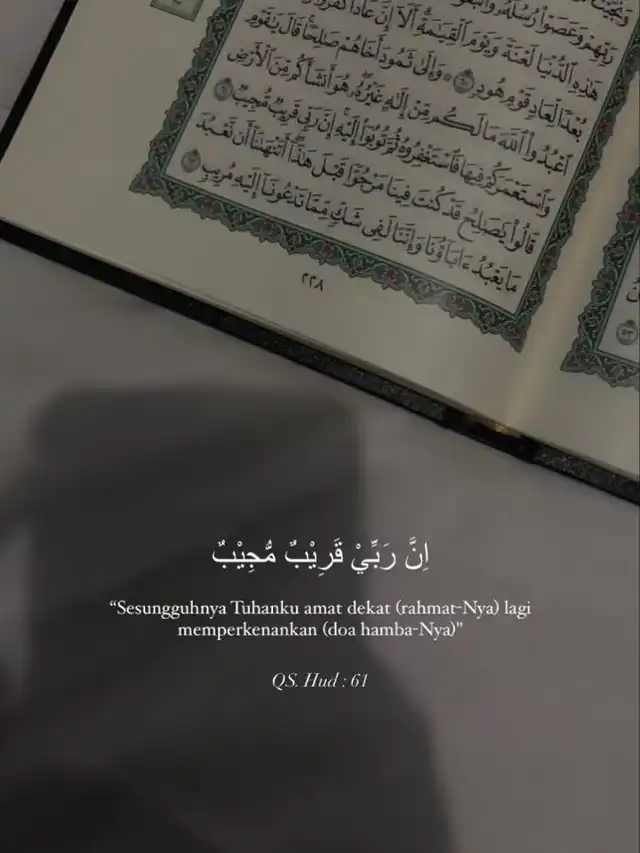 رَبِّهِمْ وَعَصَوْا۟ رُسُلَهُۥ
هَٰذِهِ ٱلدُّنْيَا لَعْنَةً وَيَوْمَ ٱلْقِيَٰمَةِ ۗ أَلَآ إِنَّ عَادًا كَفَرُوا۟
بُعْدًا لِّعَادٍ قَوْمِ هُودٍ ٦٠ ۞ وَإِلَىٰ ثَمُودَ أَخَاهُمْ صَٰلِحًا ۚ قَالَ يَٰقَوْمِ
ٱعْبُدُوا۟ ٱللَّهَ مَا لَكُم مِّنْ إِلَٰهٍ غَيْرُهُۥ ۖ هُوَ أَنشَأَكُم مِّنَ ٱلْأَرْضِ
وَٱسْتَعْمَرَكُمْ فِيهَا فَٱسْتَغْفِرُوهُ ثُمَّ تُوبُوٓا۟ إِلَيْهِ ۚ إِنَّ رَبِّى قَرِيبٌ مُّجِيبٌ ٦١
قَالُوا۟ يَٰصَٰلِحُ قَدْ كُنتَ فِينَا مَرْجُوًّا قَبْلَ هَٰذَآ ۖ أَتَنْهَىٰنَآ أَن نَّعْبُدَ
مَا يَعْبُدُ ءَابَآؤُنَا وَإِنَّنَا لَفِى شَكٍّ مِّمَّا تَدْعُونَآ إِلَيْهِ مُرِيبٍ ٦٢
٢٢٨
اِنَّ رَبِّيْ قَرِيْبٌ مُّجِيْبٌ
“Sesungguhnya Tuhanku amat dekat (rahmat-Nya) lagi
memperkenankan (doa hamba-Nya)"
QS. Hud : 61